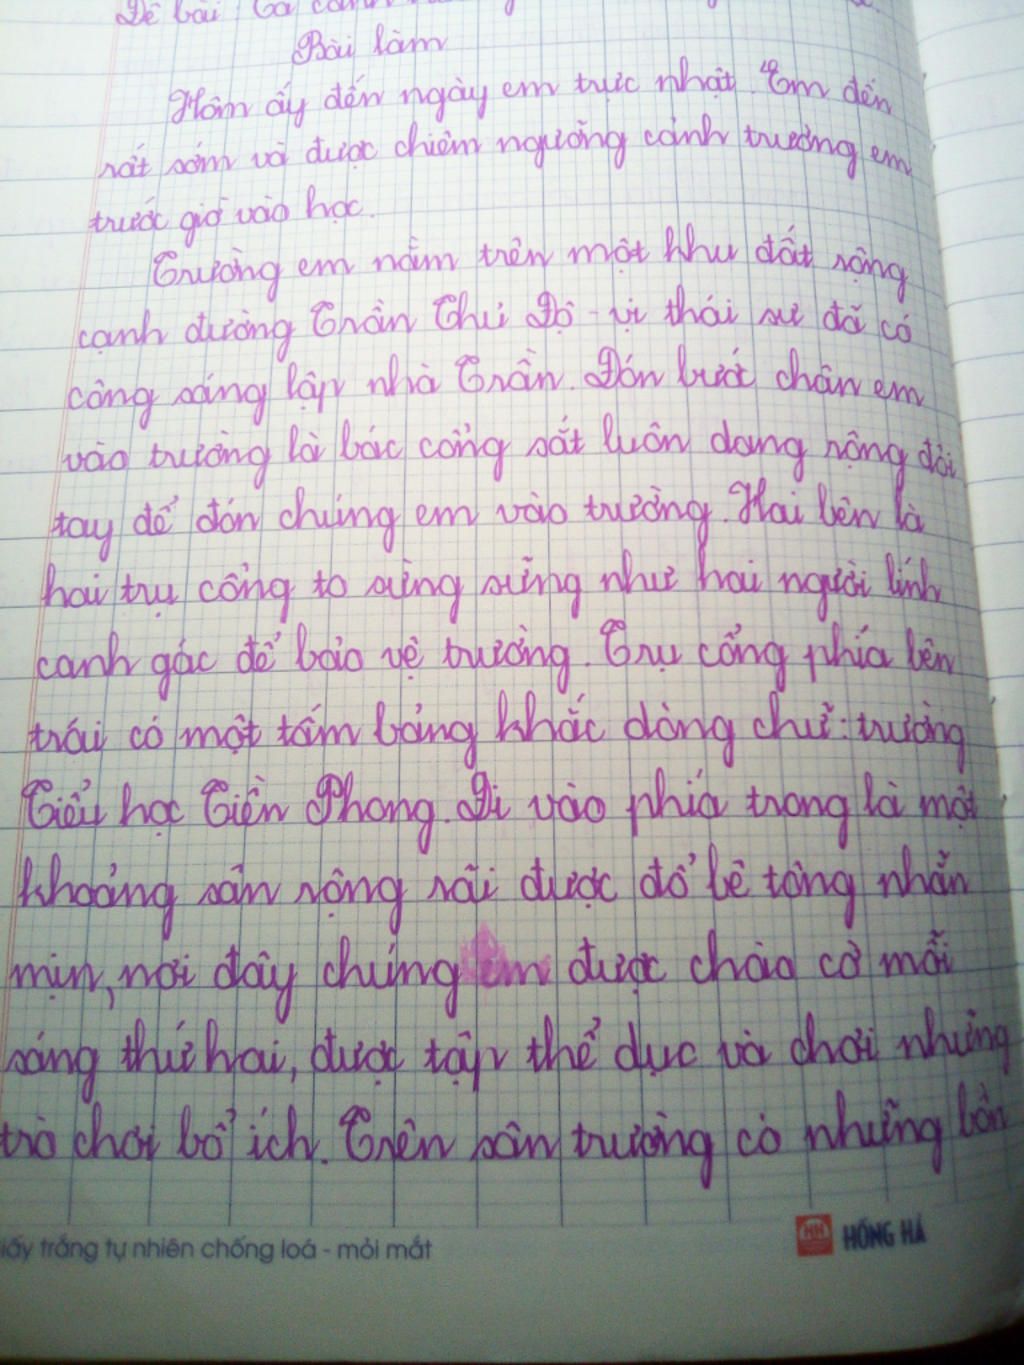 Đề bài: Tả cảnh
Bài làm
Hôm ấy đến ngày em trực nhật. Em đến
rất sớm và được chiêm ngưỡng cảnh trường em
trước giờ vào học.
Trường em nằm trên một khu đất rộng
cạnh đường Trần Thủ Độ - vị thái sư đã có
công sáng lập nhà Trần. Đón bước chân em
vào trường là bác cổng sắt luôn dang rộng đôi
tay để đón chúng em vào trường. Hai bên là
hai trụ cổng to sừng sững như hai người lính
canh gác để bảo vệ trường. Trụ cổng phía bên
trái có một tấm bảng khắc dòng chữ: trường
Tiểu học Tiền Phong. Đi vào phía trong là một
khoảng sân rộng rãi được đổ bê tông nhẵn
mịn, nơi đây chúng em được chào cờ mỗi
sáng thứ hai, được tập thể dục và chơi những
trò chơi bổ ích. Trên sân trường có những bồn
giấy trắng tự nhiên chống loá - mỏi mắt
HH HỒNG HÀ